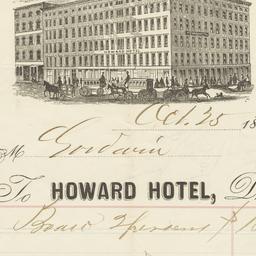 Oct. 25 18
M Goodwin
To HOWARD HOTEL, D
Board 2 persons